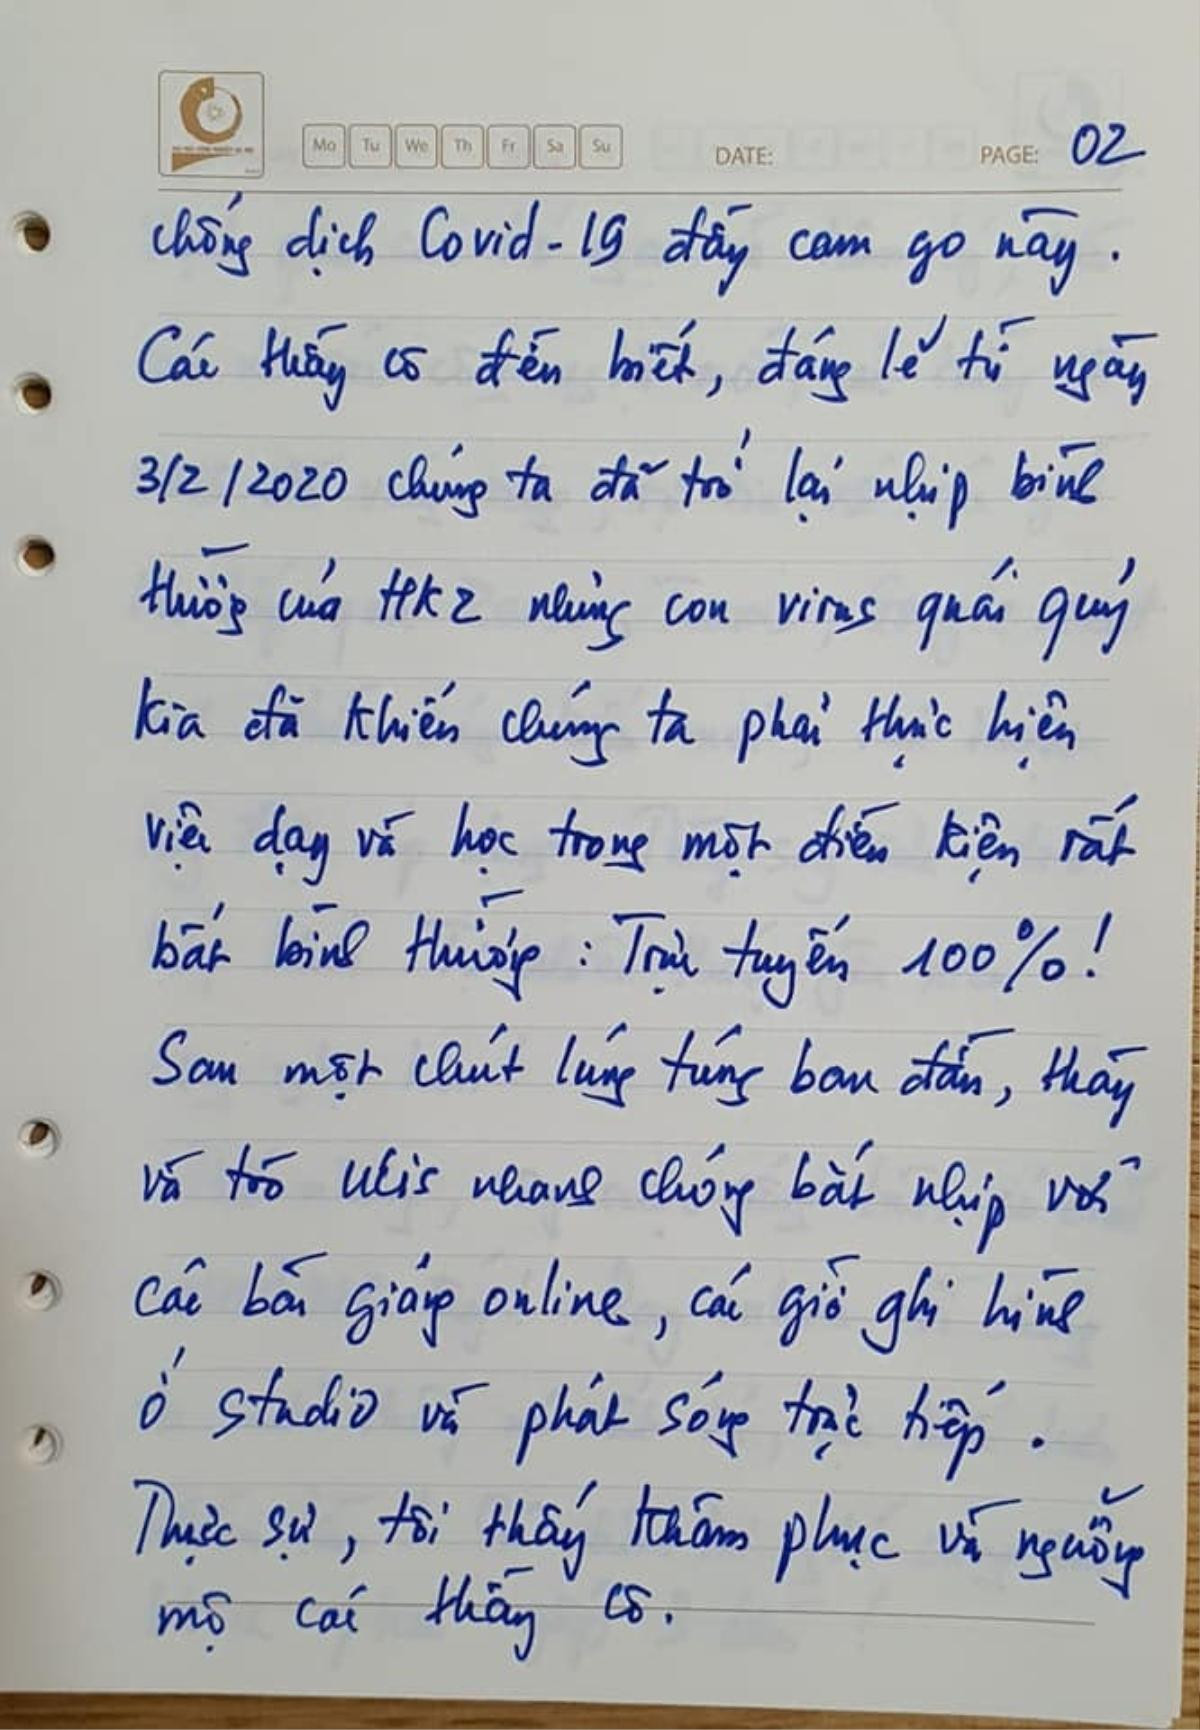 Mo Tu We Th Fr Sa Su DATE: PAGE: 02
chống dịch Covid-19 đầy cam go này.
Các thầy cô đều biết, đáng lẽ từ ngày
3/2/2020 chúng ta đã trở lại nhịp bình
thường của HK2 nhưng con virus quái quỷ
kia đã khiến chúng ta phải thực hiện
việc dạy và học trong một điều kiện rất
bất bình thường: Trực tuyến 100%!
Sau một chút lúng túng ban đầu, thầy
và trò Ulis nhanh chóng bắt nhịp với
các bài giảng online, các giờ ghi hình
ở studio và phát sóng trực tiếp.
Thực sự, tôi thấy khâm phục và ngưỡng
mộ các thầy cô.